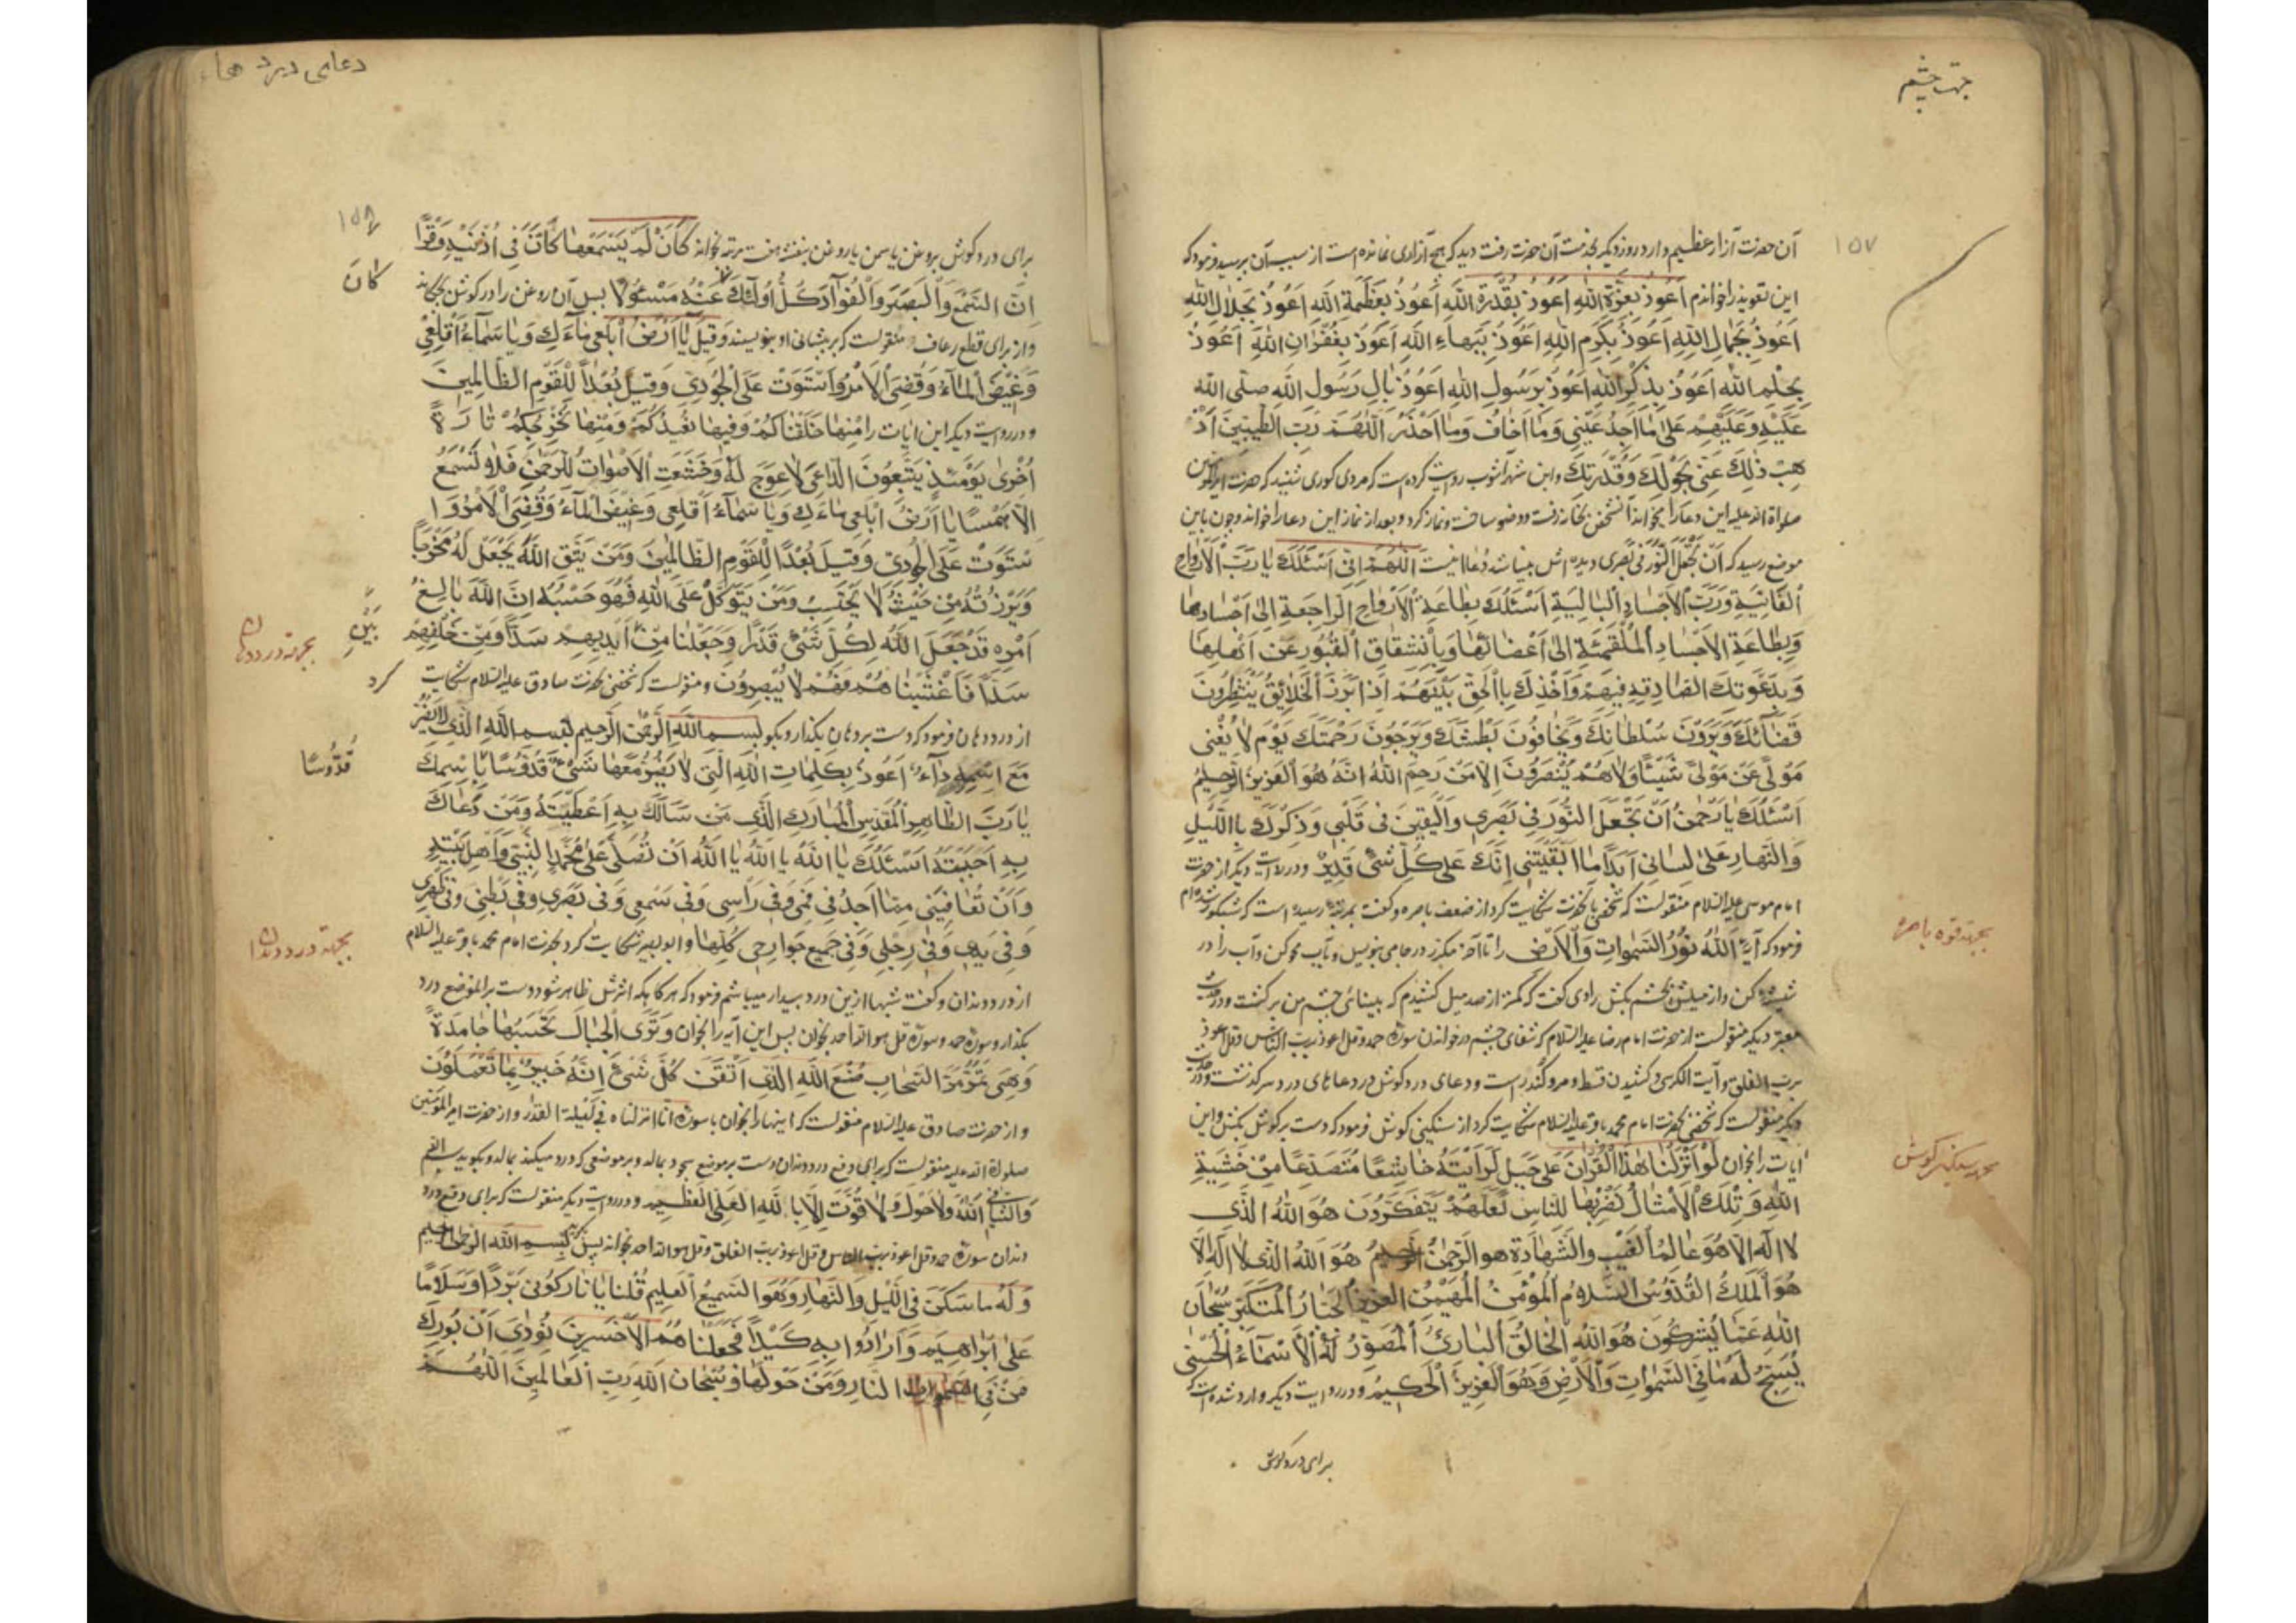 جهت چشم
۱۵۷
آن حضرت آزار عظیم دارد روز دیگر بخدمت آن حضرت رفت دید که هیچ آزاری نمانده است از سبب آن پرسید فرمود که
این تعویذ را خواندم اَعُوذُ بِعِزَّةِ اللهِ اَعُوذُ بِقُدْرَةِ اللهِ اَعُوذُ بِعَظَمَةِ اللهِ اَعُوذُ بِجَلالِ اللهِ
اَعُوذُ بِجَمالِ اللهِ اَعُوذُ بِكَرَمِ اللهِ اَعُوذُ بِبَهاءِ اللهِ اَعُوذُ بِغُفْرانِ اللهِ اَعُوذُ
بِحِلْمِ اللهِ اَعُوذُ بِذِكْرِ اللهِ اَعُوذُ بِرَسُولِ اللهِ اَعُوذُ بِالِ رَسُولِ اللهِ صلى الله
عَلَيْهِ وَعَلَيْهِمْ عَلىٰ ما اَجِدُ عَيْنى وَما اَخافُ وَما اَحْذَرُ اَللّٰهُمَّ رَبَّ الطَّيِّبينَ اَذْ
هِبْ ذٰلِكَ عَنّى بِحَوْلِكَ وَقُدْرَتِكَ وابن شهر آشوب روایت کرده است که مردی کوری شنید که حضرت امیرالمؤمنین
صلواة الله علیه این دعا را میخواند آنشخص بخانه رفت و وضو ساخت و نماز کرد و بعد از نماز این دعا را خواند و چون باین
موضع رسید که اَنْ تَجْعَلَ النُّورَ فى بَصَرى دیده اش بینا شد دعا اینست اَللّٰهُمَّ اِنّى اَسْئَلُكَ يا رَبَّ الْاَرْواحِ
الْفانِيَةِ وَرَبَّ الْاَجْسادِ الْبالِيَةِ اَسْئَلُكَ بِطاعَةِ الْاَرْواحِ الرّاجِعَةِ اِلىٰ اَجْسادِها
وَبِطاعَةِ الْاَجْسادِ الْمُلْتَئِمَةِ اِلىٰ اَعْضائِها وَبِانْشِقاقِ الْقُبُورِ عَنْ اَهْلِها
وَبِدَعْوَتِكَ الصّادِقَةِ فيهِمْ وَاَخْذِكَ بِالْحَقِّ بَيْنَهُمْ اِذا بَرَزَ الْخَلائِقُ يَنْتَظِرُونَ
قَضائَكَ وَيَرَوْنَ سُلْطانَكَ وَيَخافُونَ بَطْشَكَ وَيَرْجُونَ رَحْمَتَكَ يَوْمَ لا يُغْنى
مَوْلىً عَنْ مَوْلىً شَيْئًا وَلا هُمْ يُنْصَرُونَ اِلّا مَنْ رَحِمَ اللهُ اِنَّهُ هُوَ الْعَزيزُ الرَّحيمُ
اَسْئَلُكَ يا رَحْمٰنُ اَنْ تَجْعَلَ النُّورَ فى بَصَرى وَالْيَقينَ فى قَلْبى وَذِكْرَكَ بِاللَّيْلِ
وَالنَّهارِ عَلىٰ لِسانى اَبَدًا ما اَبْقَيْتَنى اِنَّكَ عَلىٰ كُلِّ شَىْءٍ قَديرٌ و در روایت دیگر از حضرت
امام موسی علیه السلام منقولست که شخصی بآنحضرت شکایت کرد از ضعف باصره و گفت بمرتبه رسیده است که شبکور شده ام
فرمود که آیه اَللهُ نُورُ السَّمٰواتِ وَالْاَرْضِ را تا آخر مکرر در جامی بنویس و بآب محو کن و آب را در
شیشه کن و از میلش بچشم بکش راوی گفت که کمتر از صد میل کشیدم که بینائی چشم من برگشت و در حدیث
معتبر دیگر منقولست از حضرت امام رضا علیه السلام که شفای چشم در خواندن سوره حمد و قل اعوذ برب الناس و قل اعوذ
برب الفلق و آیت الکرسی و کشیدن قسط و مر و کندر است و دعای درد گوش در دعاهای درد سر گذشت و در حدیث
دیگر منقولست که شخصی بحضرت امام محمد باقر علیه السلام شکایت کرد از سنگینی گوش فرمود که دست بر گوش بکش و این
ایات را بخوان لَوْ اَنْزَلْنا هٰذَا الْقُرْاٰنَ عَلىٰ جَبَلٍ لَرَاَيْتَهُ خاشِعًا مُتَصَدِّعًا مِنْ خَشْيَةِ
اللهِ وَتِلْكَ الْاَمْثالُ نَضْرِبُها لِلنّاسِ لَعَلَّهُمْ يَتَفَكَّرُونَ هُوَ اللهُ الَّذى
لا اِلٰهَ اِلّا هُوَ عالِمُ الْغَيْبِ وَالشَّهادَةِ هُوَ الرَّحْمٰنُ الرَّحيمُ هُوَ اللهُ الَّذى لا اِلٰهَ اِلّا
هُوَ الْمَلِكُ الْقُدُّوسُ السَّلامُ الْمُؤْمِنُ الْمُهَيْمِنُ الْعَزيزُ الْجَبّارُ الْمُتَكَبِّرُ سُبْحانَ
اللهِ عَمّا يُشْرِكُونَ هُوَ اللهُ الْخالِقُ الْبارِئُ الْمُصَوِّرُ لَهُ الْاَسْماءُ الْحُسْنىٰ
يُسَبِّحُ لَهُ ما فِى السَّمٰواتِ وَالْاَرْضِ وَهُوَ الْعَزيزُ الْحَكيمُ و در روایت دیگر وارد شده است که
برای درد گوش
بجهته قوه باصره
بجهته سنگینی گوش
دعاهای درد ها
۱۵۸
برای درد گوش بروغن یاسمن یا روغن بنفشه هفت مرتبه بخواند كَاَنْ لَمْ يَسْمَعْها كَاَنَّ فى اُذُنَيْهِ وَقْرًا
اِنَّ السَّمْعَ وَالْبَصَرَ وَالْفُؤادَ كُلُّ اُولٰئِكَ كانَ عَنْهُ مَسْئُولًا پس آن روغن را در گوش بچکاند
و از برای قطع رعاف منقولست که بر پیشانی او بنویسند وَقيلَ يا اَرْضُ ابْلَعى ماءَكِ وَيا سَماءُ اَقْلِعى
وَغيضَ الْماءُ وَقُضِىَ الْاَمْرُ وَاسْتَوَتْ عَلَى الْجُودِىِّ وَقيلَ بُعْدًا لِلْقَوْمِ الظّالِمينَ
و در روایت دیگر این ایات را مِنْها خَلَقْناكُمْ وَفيها نُعيدُكُمْ وَمِنْها نُخْرِجُكُمْ تارَةً
اُخْرىٰ يَوْمَئِذٍ يَتَّبِعُونَ الدّاعِىَ لا عِوَجَ لَهُ وَخَشَعَتِ الْاَصْواتُ لِلرَّحْمٰنِ فَلا تَسْمَعُ
اِلّا هَمْسًا يا اَرْضُ ابْلَعى ماءَكِ وَيا سَماءُ اَقْلِعى وَغيضَ الْماءُ وَقُضِىَ الْاَمْرُ وَا
سْتَوَتْ عَلَى الْجُودِىِّ وَقيلَ بُعْدًا لِلْقَوْمِ الظّالِمينَ وَمَنْ يَتَّقِ اللهَ يَجْعَلْ لَهُ مَخْرَجًا
وَيَرْزُقْهُ مِنْ حَيْثُ لا يَحْتَسِبُ وَمَنْ يَتَوَكَّلْ عَلَى اللهِ فَهُوَ حَسْبُهُ اِنَّ اللهَ بالِغُ
اَمْرِهِ قَدْ جَعَلَ اللهُ لِكُلِّ شَىْءٍ قَدْرًا وَجَعَلْنا مِنْ اَيْديهِمْ سَدًّا وَمِنْ خَلْفِهِمْ
سَدًّا فَاَغْشَيْناهُمْ فَهُمْ لا يُبْصِرُونَ و منقولست که شخصی بحضرت صادق علیه السلام شکایت کرد
از درد دهان فرمود که دست بر دهان بگذار و بگو بِسْمِ اللهِ الرَّحْمٰنِ الرَّحيمِ بِسْمِ اللهِ الَّذى لا يَضُرُّ
مَعَ اسْمِهِ داءٌ اَعُوذُ بِكَلِماتِ اللهِ الَّتى لا يَضُرُّ مَعَها شَىْءٌ قُدُّوسًا بِاسْمِكَ
يا رَبِّ الطّاهِرِ الْمُقَدَّسِ الْمُبارَكِ الَّذى مَنْ سَاَلَكَ بِهِ اَعْطَيْتَهُ وَمَنْ دَعاكَ
بِهِ اَجَبْتَهُ اَسْئَلُكَ يا اَللهُ يا اَللهُ يا اَللهُ اَنْ تُصَلِّىَ عَلىٰ مُحَمَّدٍ النَّبِىِّ وَاَهْلِ بَيْتِهِ
وَاَنْ تُعافِيَنى مِمّا اَجِدُ فى فَمى وَفى رَاْسى وَفى سَمْعى وَفى بَصَرى وَفى بَطْنى وَفى ظَهْرى
وَفى يَدى وَفى رِجْلى وَفى جَميعِ جَوارِحى كُلِّها و ابو بصیر شکایت کرد بحضرت امام محمد باقر علیه السلام
از درد دندان و گفت شبها ازین درد بیدار میباشم فرمود که هرگاه اثرش ظاهر شود دست بر الموضع درد
بگذار و سوره حمد و سوره قل هو الله احد بخوان پس این آیه را بخوان وَتَرَى الْجِبالَ تَحْسَبُها جامِدَةً
وَهِىَ تَمُرُّ مَرَّ السَّحابِ صُنْعَ اللهِ الَّذى اَتْقَنَ كُلَّ شَىْءٍ اِنَّهُ خَبيرٌ بِما تَعْمَلُونَ
و از حضرت صادق علیه السلام منقولست که اینها را بخوان با سوره انا انزلناه فى ليلة القدر و از حضرت امیر المؤمنین
صلواة الله علیه منقولست که برای دفع درد دندان دست بر موضع سجود بمالد و بر موضعی که درد میکند بمالد و بگوید بسم الله
وَالشّافِى اللهُ وَلا حَوْلَ وَلا قُوَّةَ اِلّا بِاللهِ الْعَلِىِّ الْعَظيمِ و در روایت دیگر منقولست که برای دفع درد
دندان سوره حمد و قل اعوذ برب الناس و قل اعوذ برب الفلق و قل هو الله احد بخواند پس بگوید بِسْمِ اللهِ الرَّحْمٰنِ الرَّحيمِ
وَلَهُ ما سَكَنَ فِى اللَّيْلِ وَالنَّهارِ وَهُوَ السَّميعُ الْعَليمُ قُلْنا يا نارُ كُونى بَرْدًا وَسَلامًا
عَلىٰ اِبْراهيمَ وَاَرادُوا بِهِ كَيْدًا فَجَعَلْناهُمُ الْاَخْسَرينَ نُودِىَ اَنْ بُورِكَ
مَنْ فِى النّارِ وَمَنْ حَوْلَها وَسُبْحانَ اللهِ رَبِّ الْعالَمينَ اَللّٰهُمَّ
كانَ
بَيْنِ
بجهته درد دهان
قُدُّوسًا
بجهته درد دندان